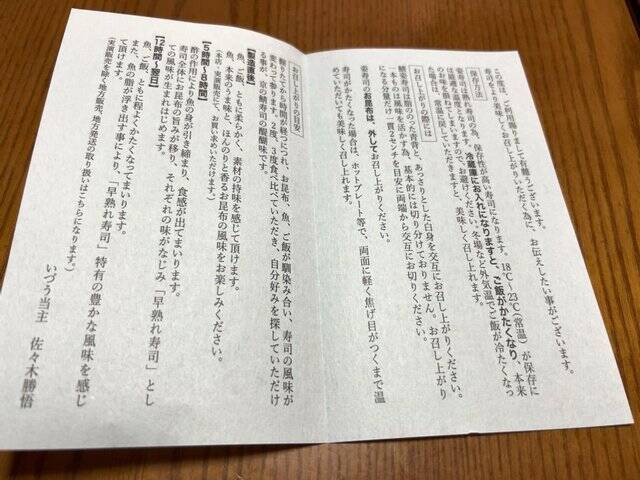 この度は、ご利用賜りまして有難うございます。
寿司をより美味しくお召し上がりいただく為に、お伝えしたい事がございます。
保存方法
姿寿司は熟れ寿司の為、保存性が高い寿司になります。18℃〜23℃(常温)が保存に
最適な温度となります。冷蔵庫にお入れになりますと、ご飯がかたくなり、本来
の風味を損ないますので、お避けください。冬場など外気温でご飯が冷たくなっ
た場合は、常温に戻していただきますと、美味しく召し上れます。
お召し上がりの際には
鯖姿寿司は脂ののった青背と、あっさりとした白身を交互にお召し上がりください。
本来もつ風味を活かす為、基本的には切り分けておりません。お召し上がり
になる分量だけ一貫2センチを目安に両端から交互にお切りください。
姿寿司のお昆布は、外してお召し上がりください。
寿司がかたくなった場合は、ホットプレート等で、両面に軽く焦げ目がつくまで温
めていただいても美味しく召し上れます。
お召し上がりの目安
握りたてから時間が経つにつれ、お昆布、魚、ご飯が馴染み合い、寿司の風味が
変わって参ります。2度、3度食べ比べていただき、自分好みを探していただけ
る事が、京の鯖寿司の醍醐味です。
【製造直後】
魚、ご飯、ともに柔らかく、素材の持味を感じて頂けます。
魚、本来のうま味と、ほんのりと香るお昆布の風味をお楽しみください。
(本店・実演販売にて、お買い求めいただけます。)
【5時間〜8時間】
酢の作用により魚の身が引き締まり、食感が出てまいります。
寿司全体にお昆布の旨みが移り、それぞれの味がなじみ「早熟れ寿司」とし
ての風味が生まれはじめます。
【12時間〜翌日】
魚、ご飯、ともに程よくかたくなってまいります。
また、魚の脂が浮き出す事により、「早熟れ寿司」特有の豊かな風味を感じ
て頂けます。
(実演販売を除く地方販売、地方発送の取り扱いはこちらになります。)
いづう当主 佐々木勝悟